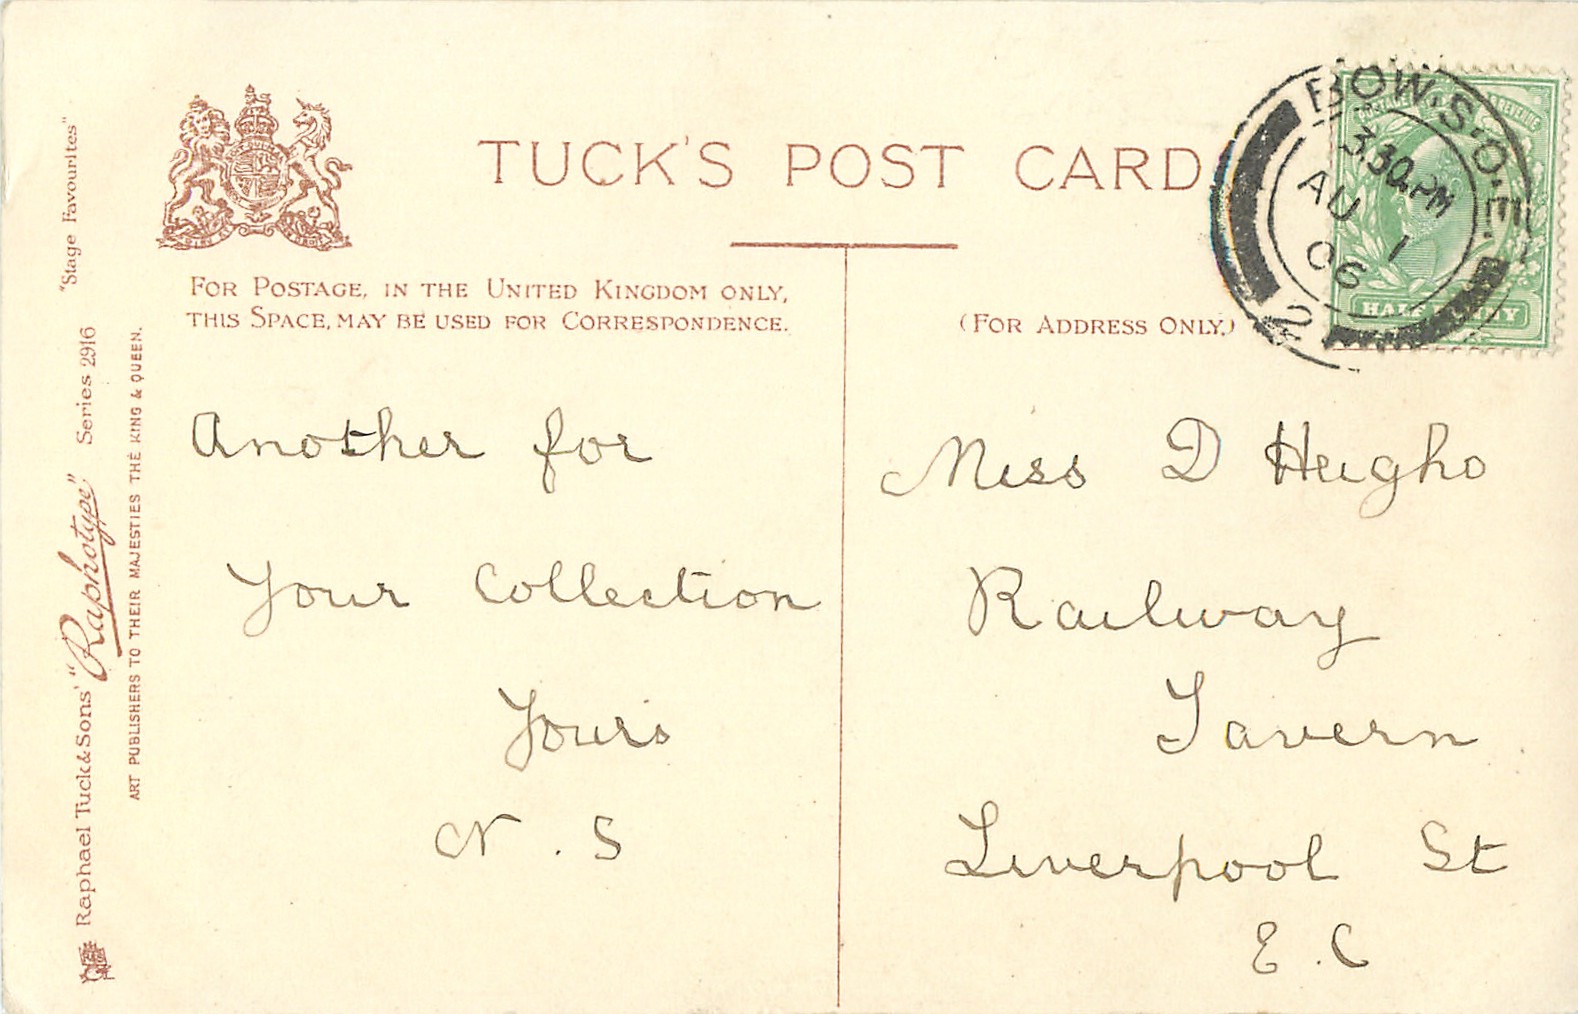 TUCK'S POST CARD
FOR POSTAGE, IN THE UNITED KINGDOM ONLY,
THIS SPACE, MAY BE USED FOR CORRESPONDENCE.
(FOR ADDRESS ONLY.)
BOW.S.O.E.
3.30.PM
AU 1
06
2
POSTAGE
REVENUE
HALF PENNY
Another for
Your Collection
Yours
N. S
Miss D Heigho
Railway
Tavern
Liverpool St
E.C
"Stage Favourites"
Raphael Tuck & Sons' "Raphotype" Series 2916
ART PUBLISHERS TO THEIR MAJESTIES THE KING & QUEEN.